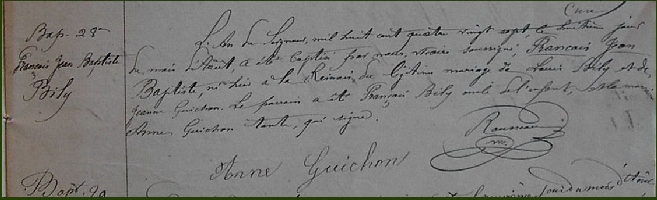 Curé
Bap. 28
François Jean Baptiste
Bily
L'An du Seigneur, mil huit cent quatre vingt sept, le huitième jour
du mois d'Août, a été baptisé par nous, vicaire soussigné, François Jean
Baptiste, né hier à la du légitime mariage de Louis Bily et de
Jeanne Guichon. Le parrain a été François Bily oncle de l'enfant,
Anne Guichon tante, qui signe.
Anne Guichon
Bapt.
mois d'Août